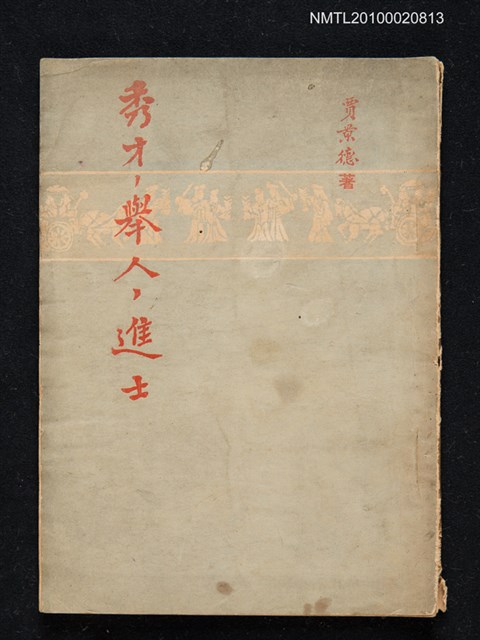 NMTL20100020813
賈景德著
秀才，舉人，進士